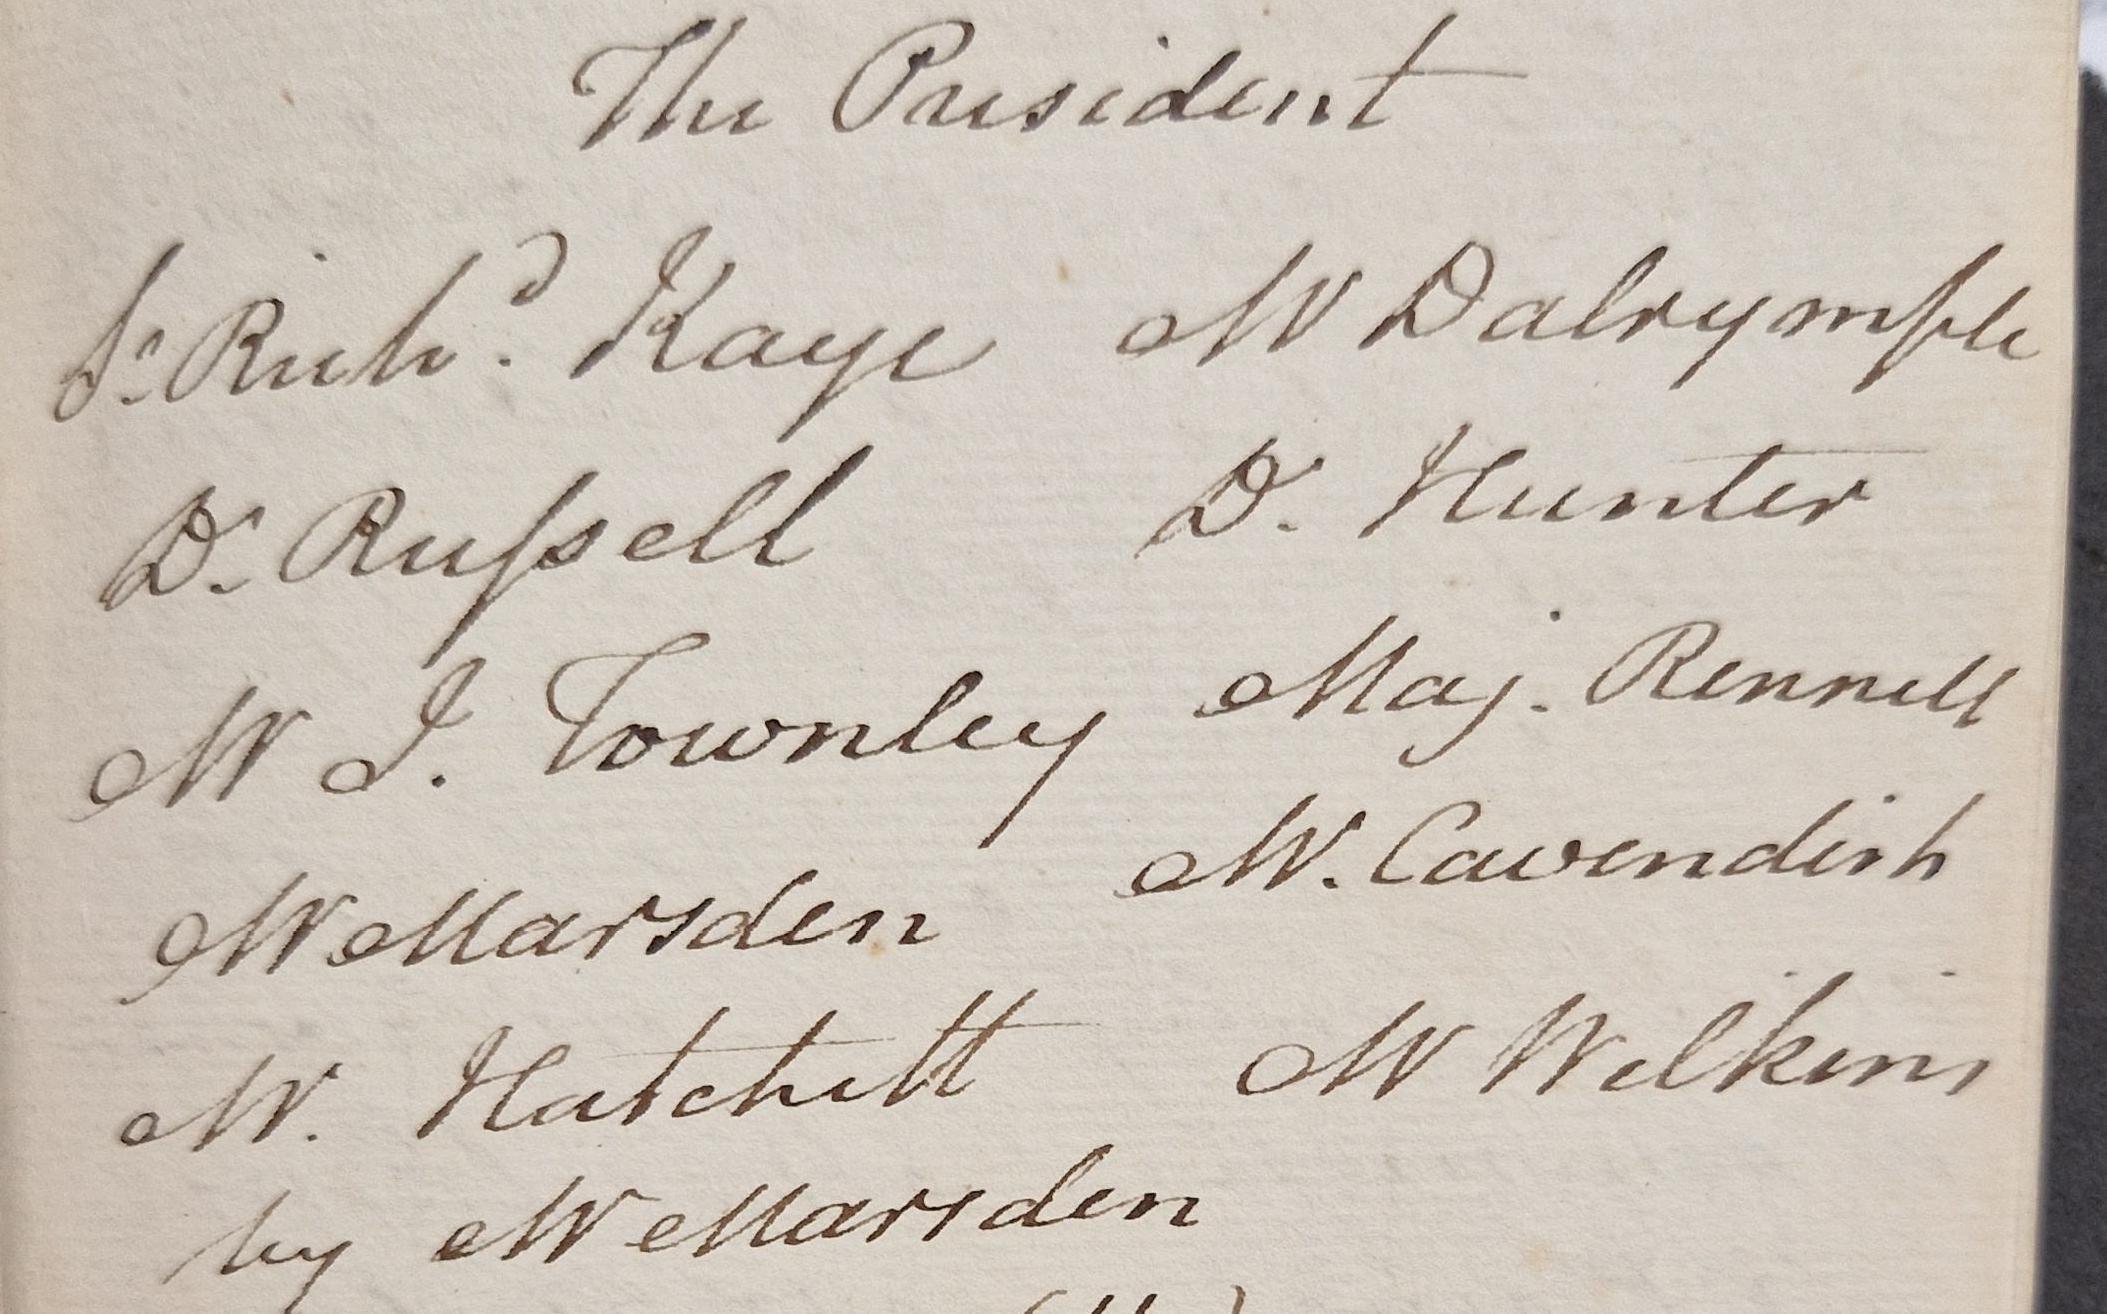 The President
Sr. Richd. Kaye Mr Dalrymple
Dr. Russell Dr. Hunter
Mr J. Townley Maj. Rennell
Mr Marsden Mr. Cavendish
Mr. Hatchett Mr Wilkins
by Mr Marsden